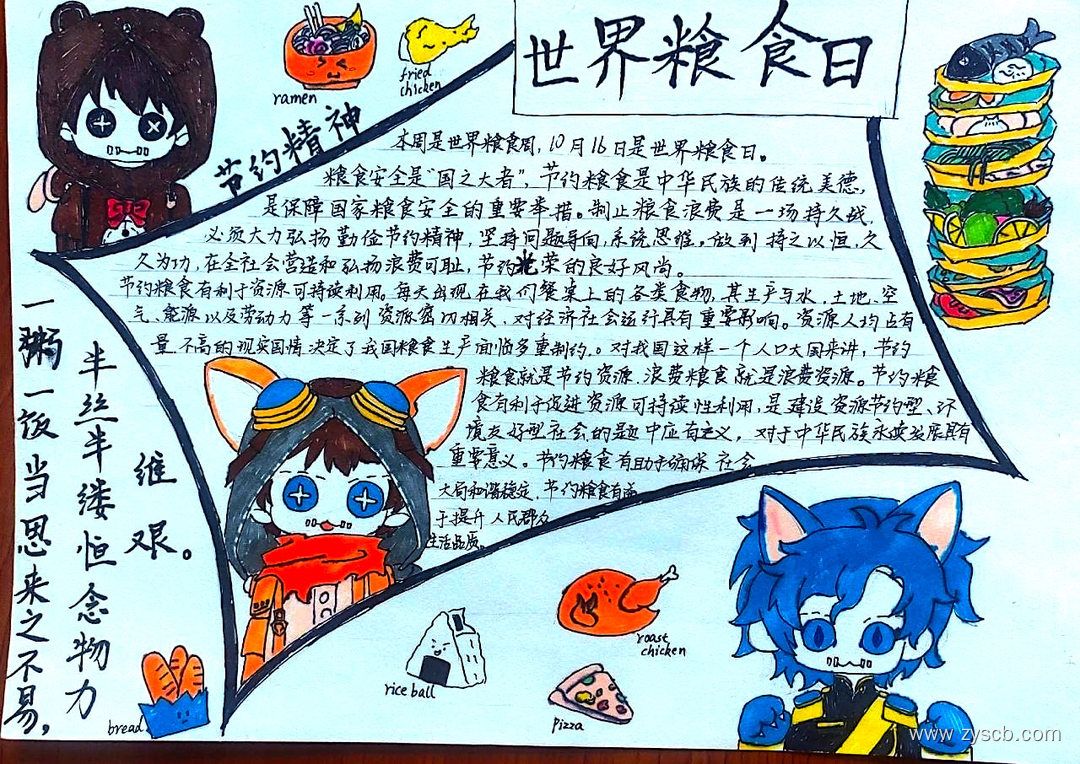 世界粮食日
ramen
fried
chicken
节约精神
本周是世界粮食周，10月16日是世界粮食日。
粮食安全是“国之大者”，节约粮食是中华民族的传统美德，
是保障国家粮食安全的重要举措。制止粮食浪费是一场持久战，
必须大力弘扬勤俭节约精神，坚持问题导向，系统思维，做到持之以恒，久
久为功，在全社会营造和弘扬浪费可耻，节约光荣的良好风尚。
节约粮食有利于资源可持续利用。每天出现在我们餐桌上的各类食物，其生产与水、土地、空
气、能源以及劳动力等一系列资源密切相关，对经济社会运行具有重要影响。资源人均占有
量不高的现实国情决定了我国粮食生产面临多重制约。对我国这样一个人口大国来讲，节约
粮食就是节约资源，浪费粮食就是浪费资源。节约粮
食有利于促进资源可持续性利用，是建设资源节约型、环
境友好型社会的题中应有之义，对于中华民族永续发展具有
重要意义。节约粮食有助于确保社会
大局和谐稳定，节约粮食有益
于提升人民群众
生活品质。
一粥一饭当思来之不易，
半丝半缕恒念物力
维艰。
bread
rice ball
roast
chicken
pizza
www.zyscb.com